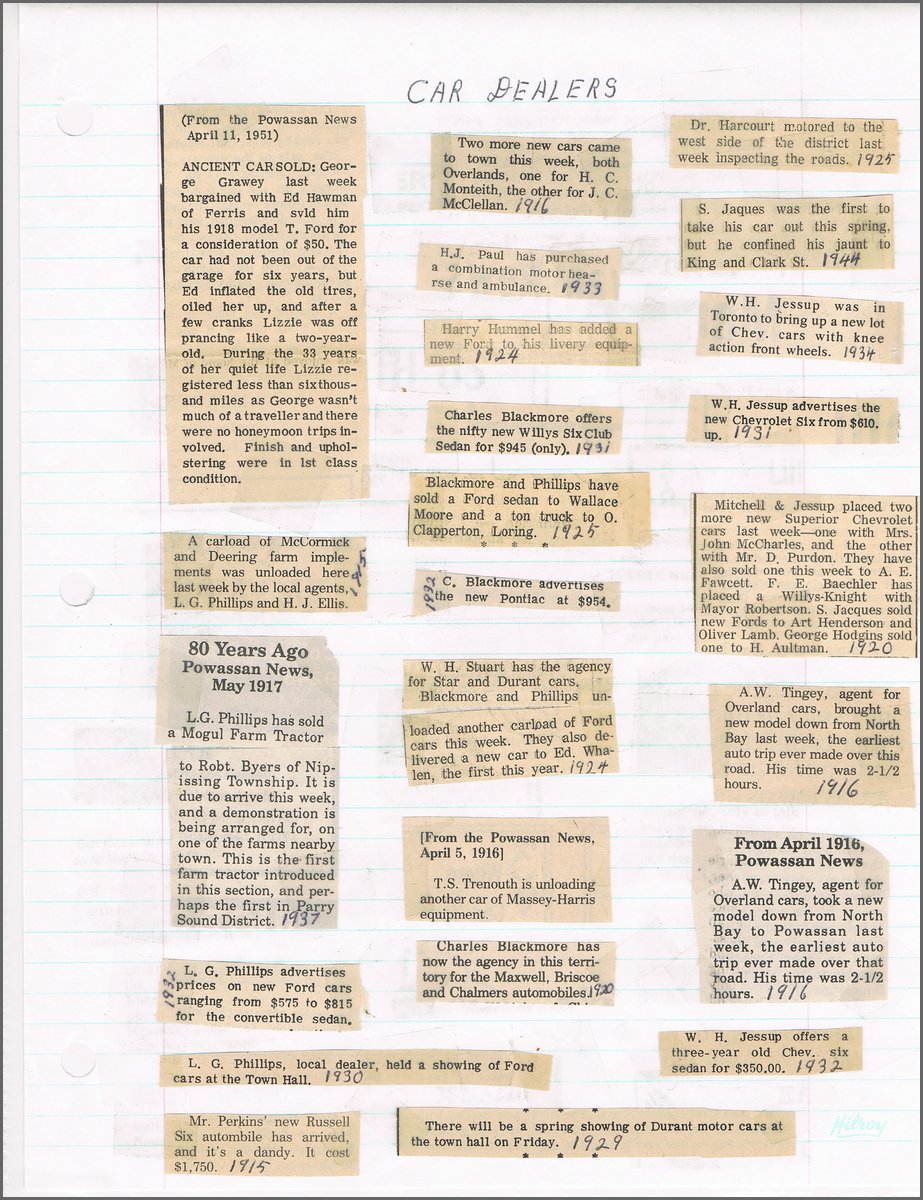 CAR DEALERS
(From the Powassan News
April 11, 1951)
ANCIENT CAR SOLD: Geor-
ge Grawey last week
bargained with Ed Hawman
of Ferris and svld him
his 1918 model T. Ford for
a consideration of $50. The
car had not been out of the
garage for six years, but
Ed inflated the old tires,
oiled her up, and after a
few cranks Lizzie was off
prancing like a two-year-
old. During the 33 years
of her quiet life Lizzie re-
gistered less than six thous-
and miles as George wasn't
much of a traveller and there
were no honeymoon trips in-
volved. Finish and uphol-
stering were in 1st class
condition.
A carload of McCormick
and Deering farm imple-
ments was unloaded here
last week by the local agents,
L. G. Phillips and H. J. Ellis.
80 Years Ago
Powassan News,
May 1917
L.G. Phillips has sold
a Mogul Farm Tractor
to Robt. Byers of Nip-
issing Township. It is
due to arrive this week,
and a demonstration is
being arranged for, on
one of the farms nearby
town. This is the first
farm tractor introduced
in this section, and per-
haps the first in Parry
Sound District. 1937
1932
L. G. Phillips advertises
prices on new Ford cars
ranging from $575 to $815
for the convertible sedan.
L. G. Phillips, local dealer, held a showing of Ford
cars at the Town Hall. 1930
Mr. Perkins' new Russell
Six autombile has arrived,
and it's a dandy. It cost
$1,750. 1915
Two more new cars came
to town this week, both
Overlands, one for H. C.
Monteith, the other for J. C.
McClellan. 1916
H.J. Paul has purchased
a combination motor hea-
rse and ambulance. 1933
Harry Hummel has added a
new Ford to his livery equip-
ment. 1924
Charles Blackmore offers
the nifty new Willys Six Club
Sedan for $945 (only). 1931
Blackmore and Phillips have
sold a Ford sedan to Wallace
Moore and a ton truck to O.
Clapperton, Loring. 1925
* * *
1932
C. Blackmore advertises
the new Pontiac at $954.
W. H. Stuart has the agency
for Star and Durant cars.
Blackmore and Phillips un-
loaded another carload of Ford
cars this week. They also de-
livered a new car to Ed. Wha-
len, the first this year. 1924
[From the Powassan News,
April 5, 1916]
T.S. Trenouth is unloading
another car of Massey-Harris
equipment.
Charles Blackmore has
now the agency in this terri-
tory for the Maxwell, Briscoe
and Chalmers automobiles. 1920
* * *
There will be a spring showing of Durant motor cars at
the town hall on Friday. 1929
* * *
Dr. Harcourt motored to the
west side of the district last
week inspecting the roads. 1925
S. Jaques was the first to
take his car out this spring,
but he confined his jaunt to
King and Clark St. 1944
W.H. Jessup was in
Toronto to bring up a new lot
of Chev. cars with knee
action front wheels. 1934
W.H. Jessup advertises the
new Chevrolet Six from $610.
up. 1931
Mitchell & Jessup placed two
more new Superior Chevrolet
cars last week—one with Mrs.
John McCharles, and the other
with Mr. D. Purdon. They have
also sold one this week to A. E.
Fawcett. F. E. Baechler has
placed a Willys-Knight with
Mayor Robertson. S. Jacques sold
new Fords to Art Henderson and
Oliver Lamb. George Hodgins sold
one to H. Aultman. 1920
A.W. Tingey, agent for
Overland cars, brought a
new model down from North
Bay last week, the earliest
auto trip ever made over this
road. His time was 2-1/2
hours. 1916
From April 1916,
Powassan News
A.W. Tingey, agent for
Overland cars, took a new
model down from North
Bay to Powassan last
week, the earliest auto
trip ever made over that
road. His time was 2-1/2
hours. 1916
W. H. Jessup offers a
three-year old Chev. six
sedan for $350.00. 1932
Hilroy